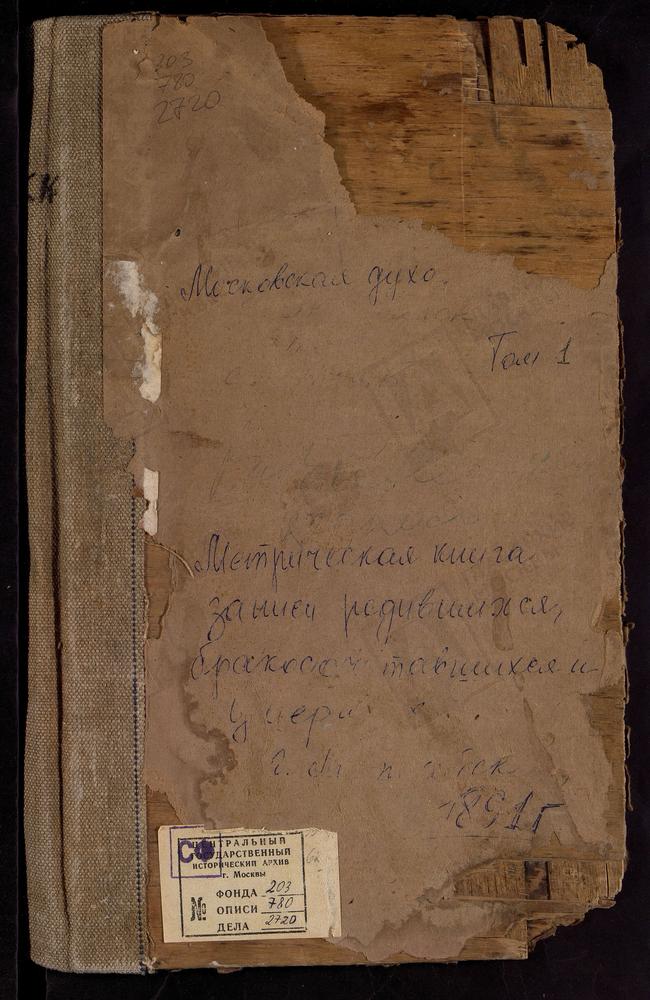 203
780
2720
КК
Московская духо
Том 1
Метрическая книга
записи родившихся,
бракосочетавшихся и
умер
г.
1891г
СФ
ЦЕНТРАЛЬНЫЙ
ГОСУДАРСТВЕННЫЙ
ИСТОРИЧЕСКИЙ АРХИВ
г. Москвы
ФОНДА 203
№ ОПИСИ 780
ДЕЛА 2720